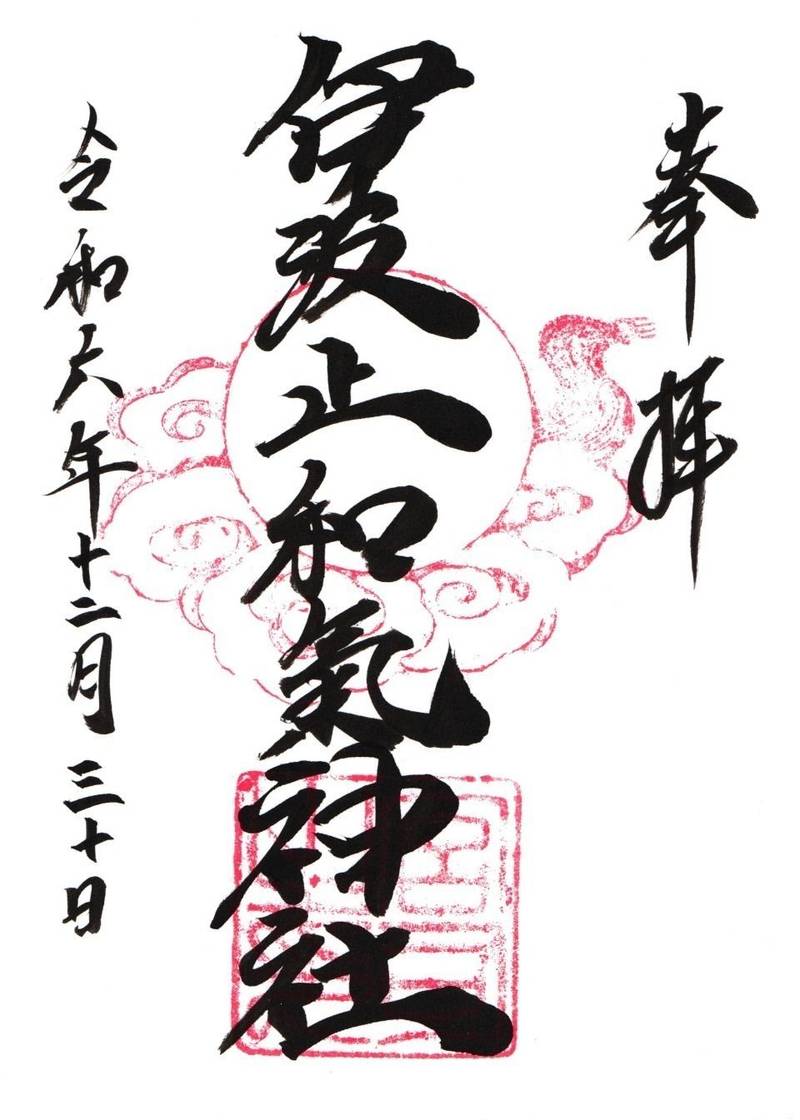 奉拝
伊波止和氣神社
令和六年十二月三十日